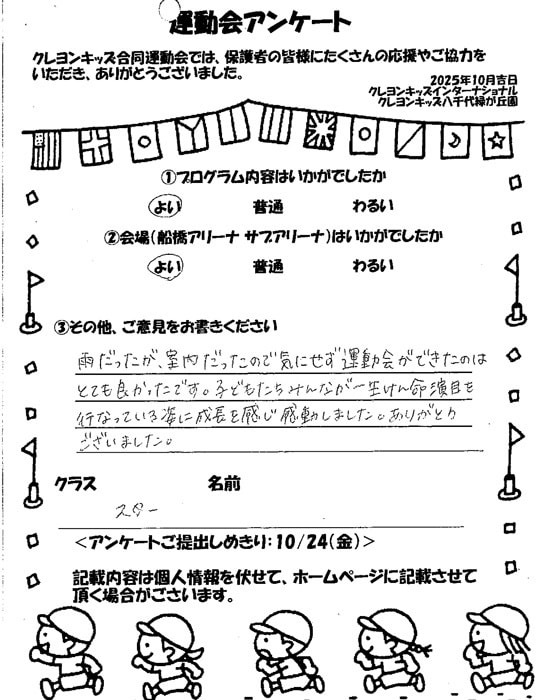 運動会アンケート
クレヨンキッズ合同運動会では、保護者の皆様にたくさんの応援やご協力を
いただき、ありがとうございました。
2025年10月吉日
クレヨンキッズインターナショナル
クレヨンキッズ八千代緑が丘園
①プログラム内容はいかがでしたか
よい 普通 わるい
②会場(船橋アリーナ サブアリーナ)はいかがでしたか
よい 普通 わるい
③その他、ご意見をお書きください
雨だったが、室内だったので気にせず運動会ができたのは
とても良かったです。子どもたちみんなが一生けん命演目を
行なっている姿に成長を感じ感動しました。ありがとう
ございました。
クラス 名前
スター
<アンケートご提出しめきり:10/24(金)>
記載内容は個人情報を伏せて、ホームページに記載させて
頂く場合がございます。